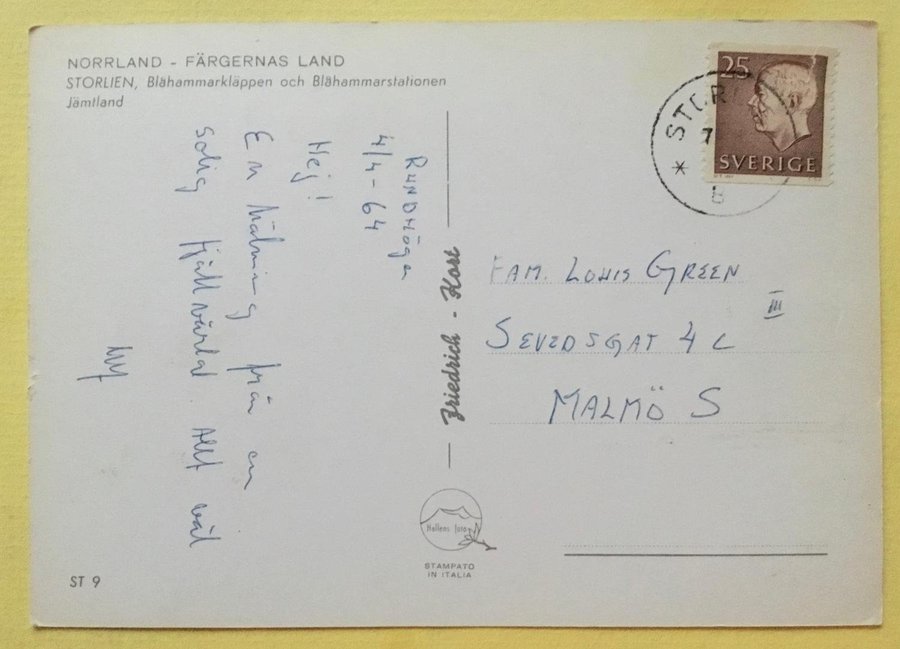 NORRLAND - FÄRGERNAS LAND
STORLIEN, Blåhammarkläppen och Blåhammarstationen
Jämtland
RUNDHÖGEN
4/4-64
Hej!
En hälsning från en
solig fjällvärld Allt väl
Friedrich - Kort
Hallens foto
STAMPATO
IN ITALIA
ST 9
25
SVERIGE
STOR
7
FAM. LOUIS GREEN
III
SEVEDSGAT 4 C
MALMÖ S